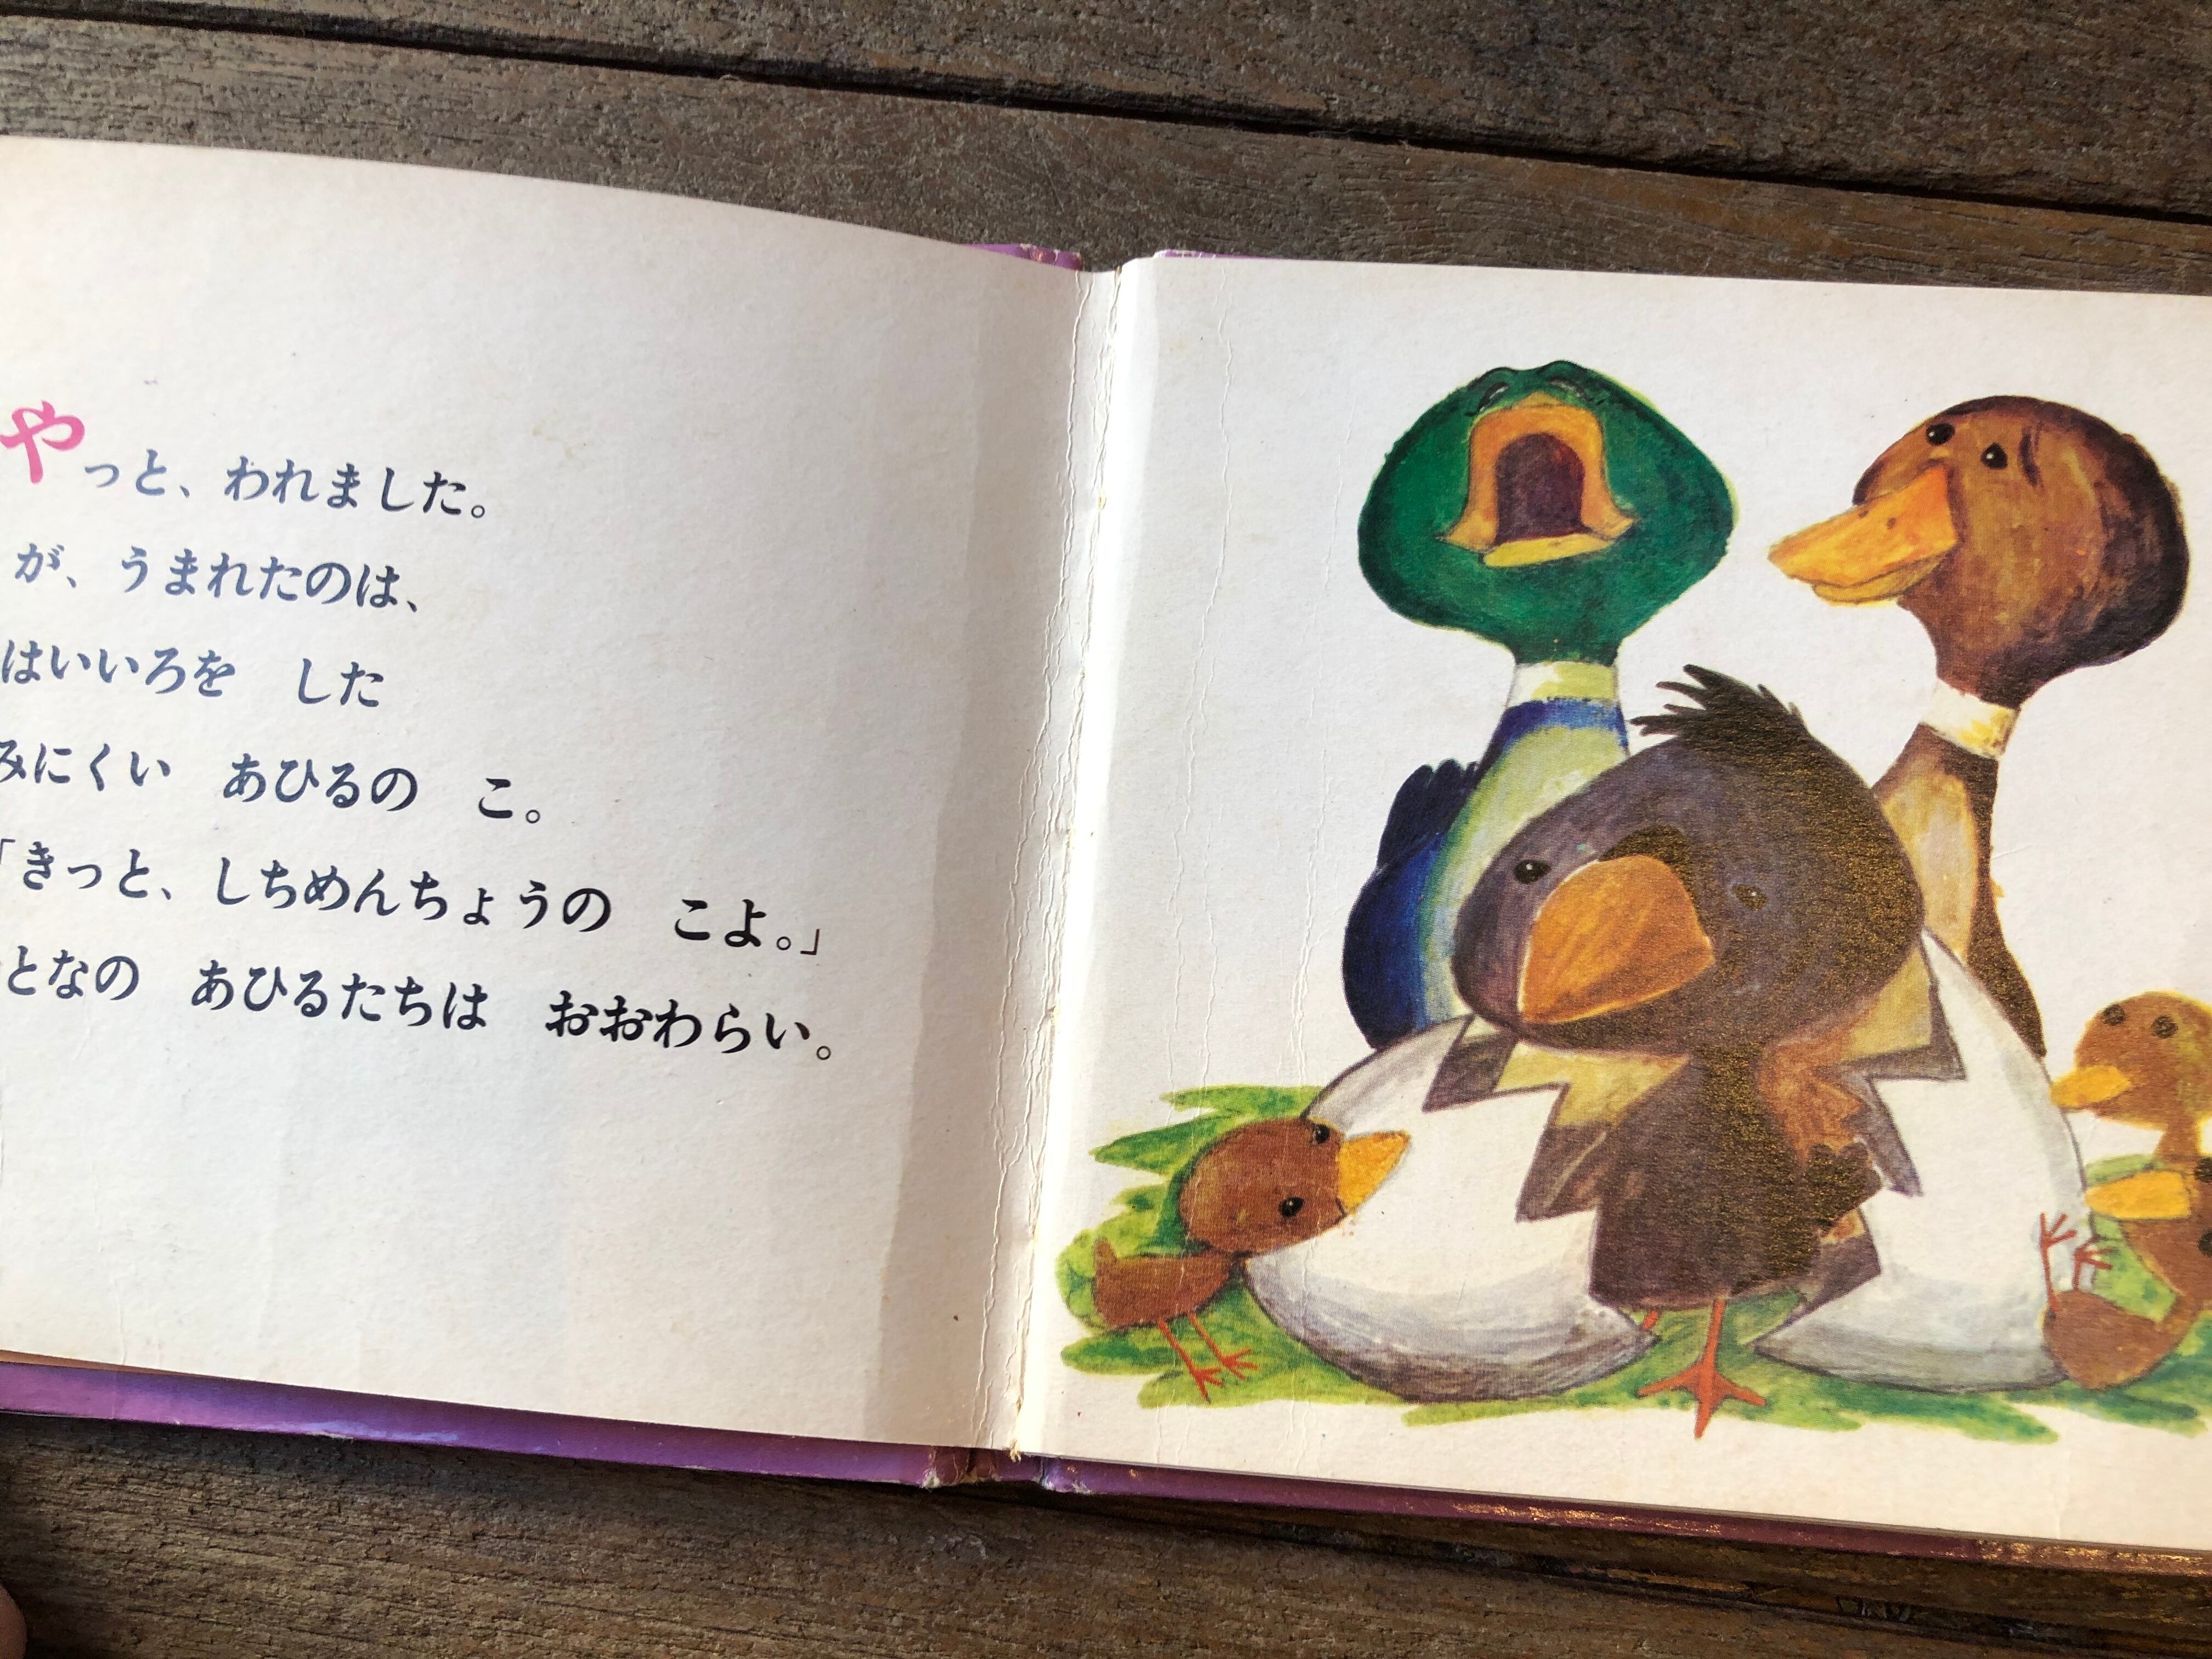 やっと、われました。
が、うまれたのは、
はいいろを　した
みにくい　あひるの　こ。
「きっと、しちめんちょうの　こよ。」
となの　あひるたちは　おおわらい。